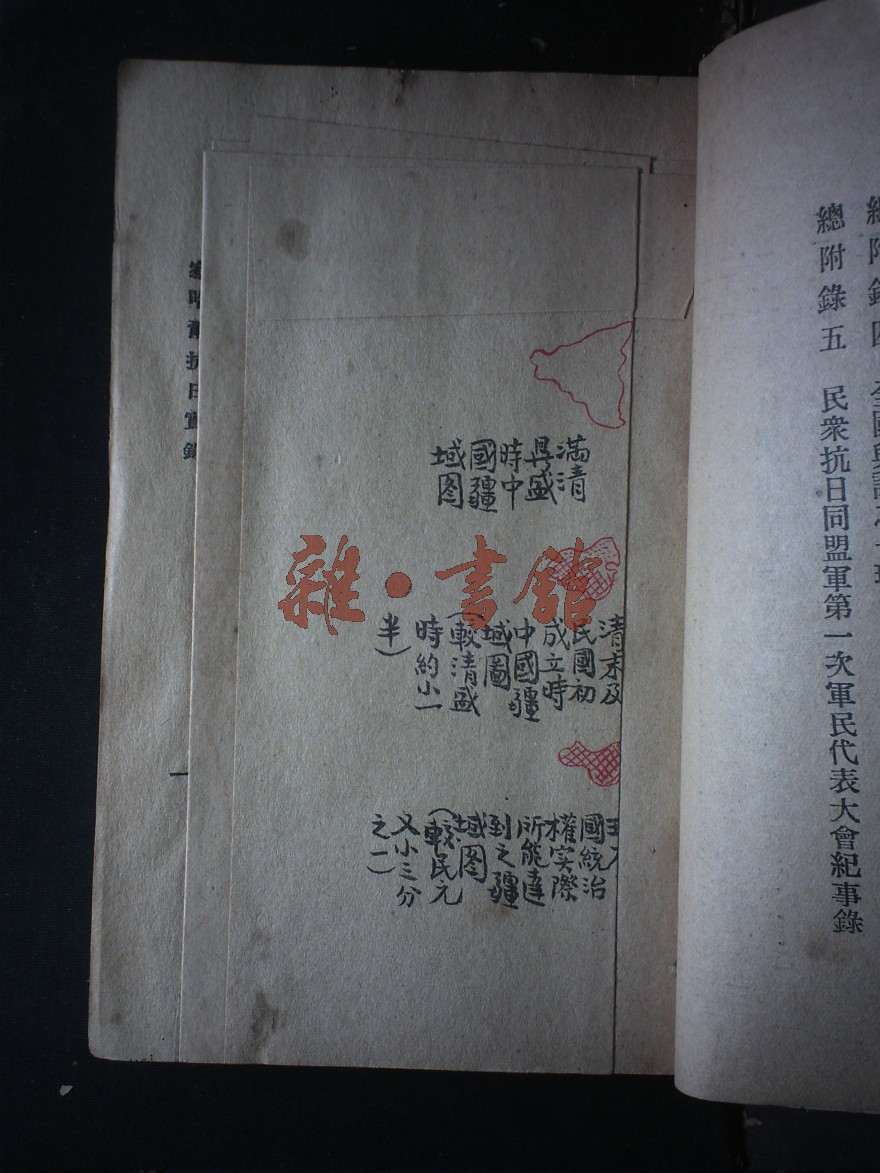 總附錄五 民衆抗日同盟軍第一次軍民代表大會紀事錄
滿清
盛
時中
國疆
域图
雜·書館
清末及
民國初
成立時
中國疆
域圖
(較清盛
時約小一
半)
國統治
權实際
所能達
到之疆
域图
(較民元
又小三分
之一)
抗日實錄
一